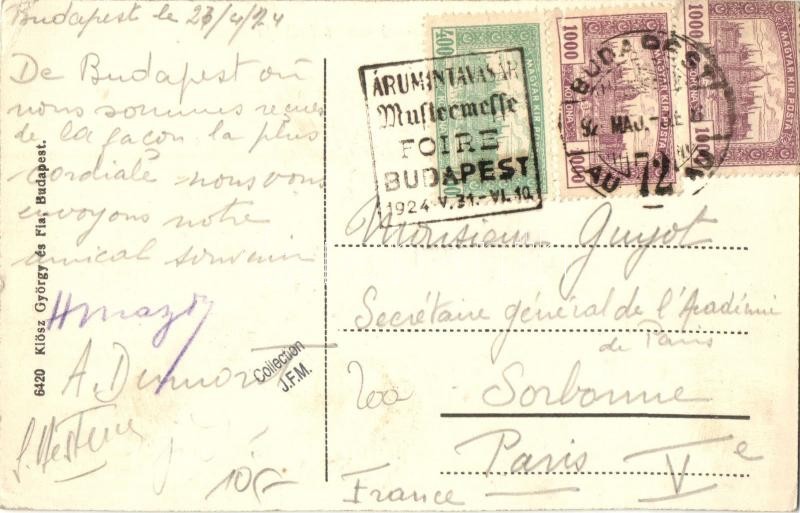 Budapest le 23/4/24
De Budapest où
nous sommes reçus
de la façon la plus
cordiale nous vous
envoyons notre
amical souvenir
A. Dumont
10,-
6420 Klösz György és Fia, Budapest.
Collection
J.F.M.
ÁRUMINTAVÁSÁR
Mustermesse
FOIRE
BUDAPEST
1924.V.31.-VI.10.
400
MAGYAR KIR. POSTA
1000
MAGYAR KIR. POSTA
1000
1000
MAGYAR KIR. POSTA
1000
BUDAPEST
72
Monsieur Guyot
Secrétaire général de l'Académie
de Paris
200
Sorbonne
Paris Ve
France